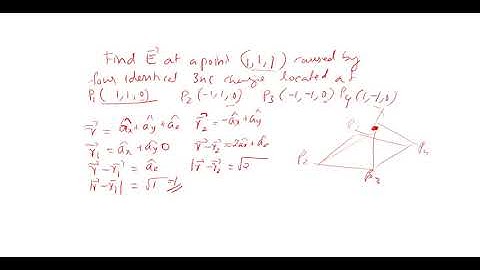 Find E⃗ at a point (1, 1, 1) caused by
four identical 3nc charge located at
P₁ ( 1, 1, 0) P₂ (-1, 1, 0) P₃ (-1, -1, 0) P₄ (1, -1, 0)
r⃗ = âx + ây + âz r⃗₂ = -âx + ây
r⃗₁ = âx + ây 0 r⃗ - r⃗₂ = 2âx + âz
r⃗ - r⃗₁ = âz |r⃗ - r⃗₂ = √
|r⃗ - r⃗₁| = √1 = 1
P₂ P₃ P₄